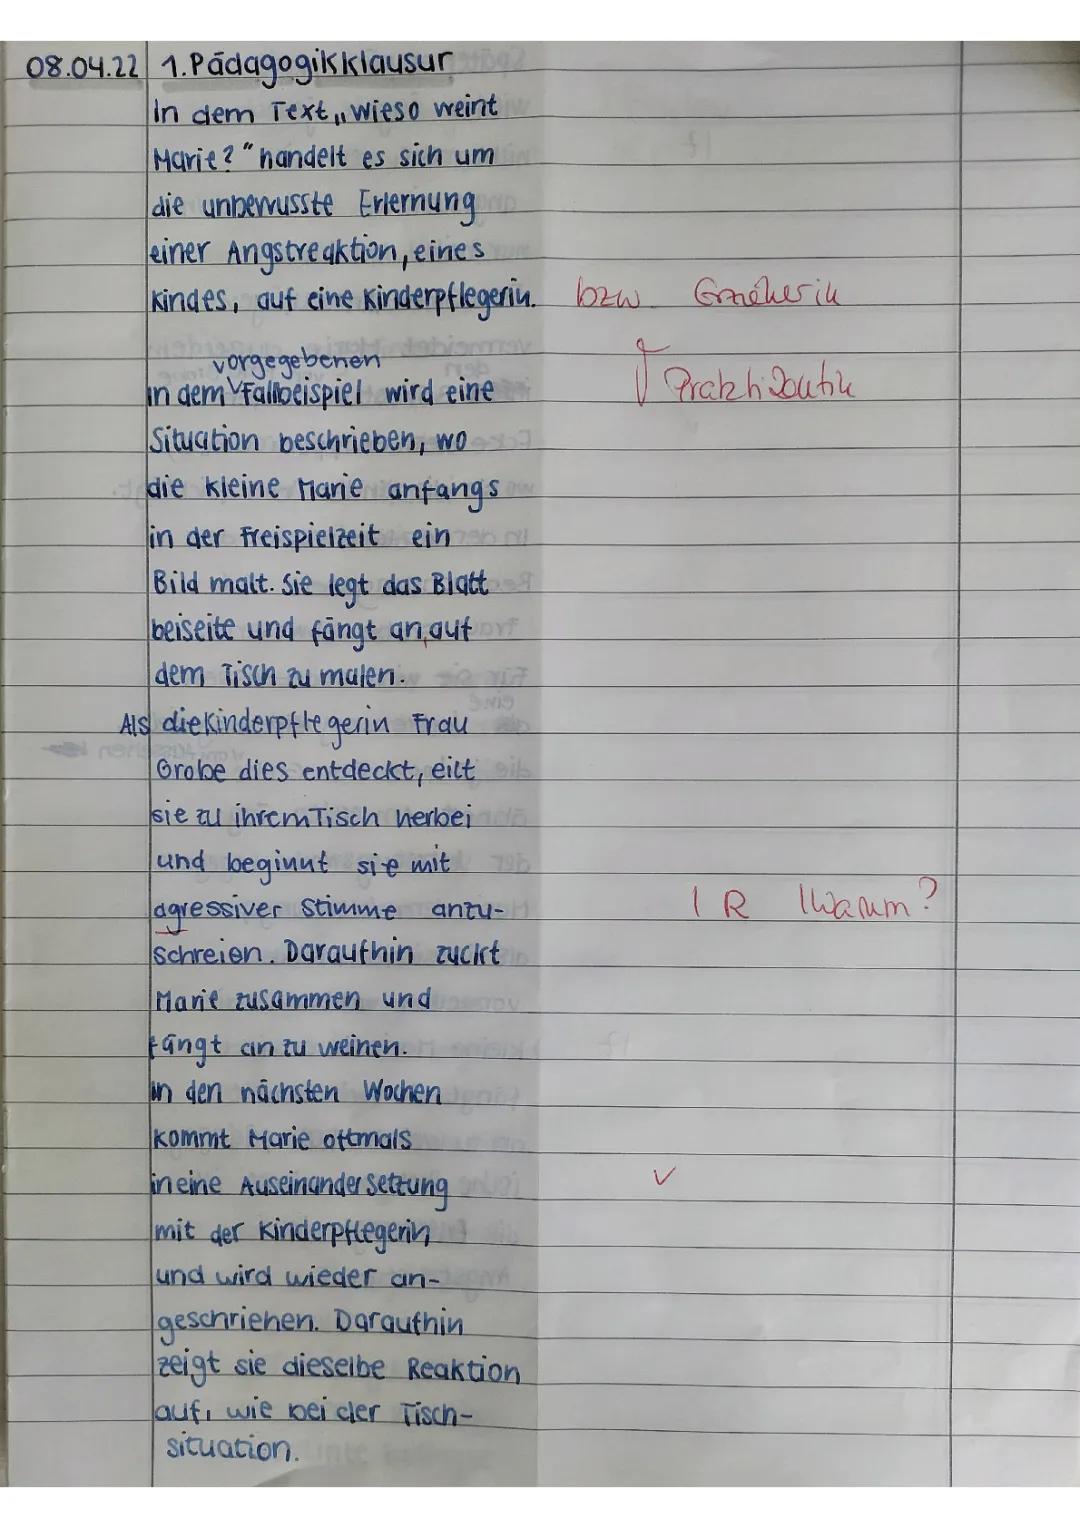 08.04.22 1. Pädagogikklausur
In dem Text „Wieso weint
Marie?" handelt es sich um
die unbewusste Erlernung
einer Angstreaktion, eines
Kindes, auf eine Kinderpflegerin. bzw. Erzieherin
vorgegebenen
Praktikantin
in dem Fallbeispiel wird eine
Situation beschrieben, wo
die kleine Marie anfangs
in der Freispielzeit ein
Bild malt. Sie legt das Blatt
beiseite und fängt an, auf
dem Tisch zu malen.
Als die Kinderpflegerin Frau
Grobe dies entdeckt, eilt
sie zu ihrem Tisch herbei
und beginnt sie mit
agressiver Stimme anzu- | R | Warum?
schreien. Daraufhin zuckt
Marie zusammen und
fängt an zu weinen.
in den nächsten Wochen
kommt Marie oftmals
in eine Auseinandersetzung ✓
mit der Kinderpflegerin
und wird wieder an-
geschriehen. Daraufhin
zeigt sie dieselbe Reaktion
auf, wie bei der Tisch-
situation.